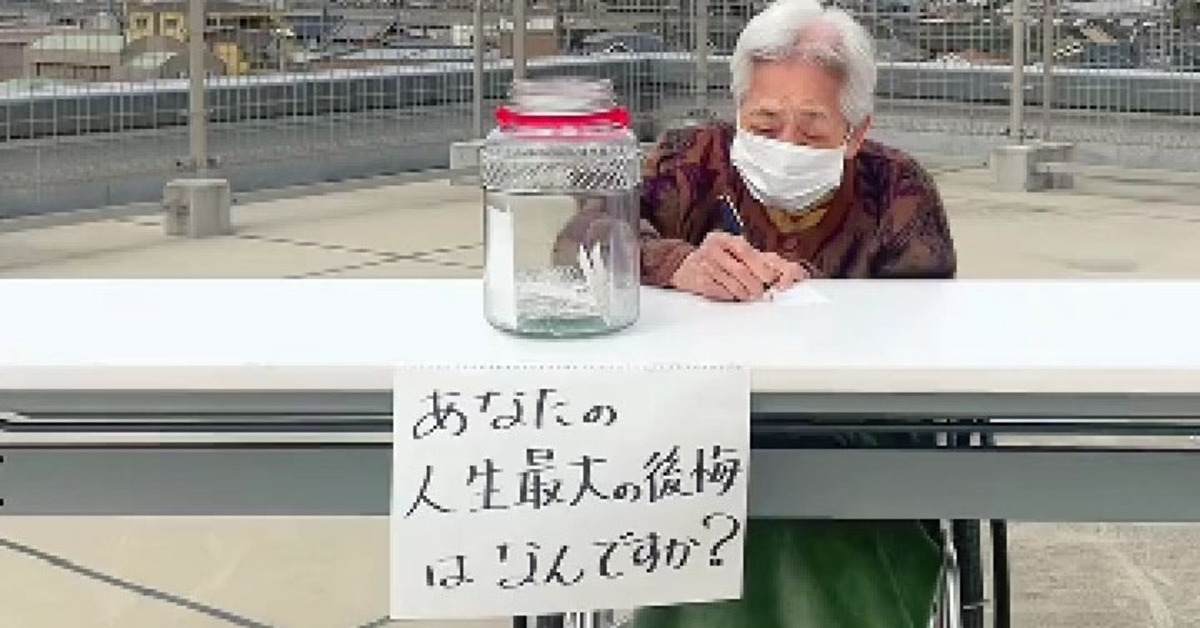 あなたの
人生最大の後悔
はなんですか？